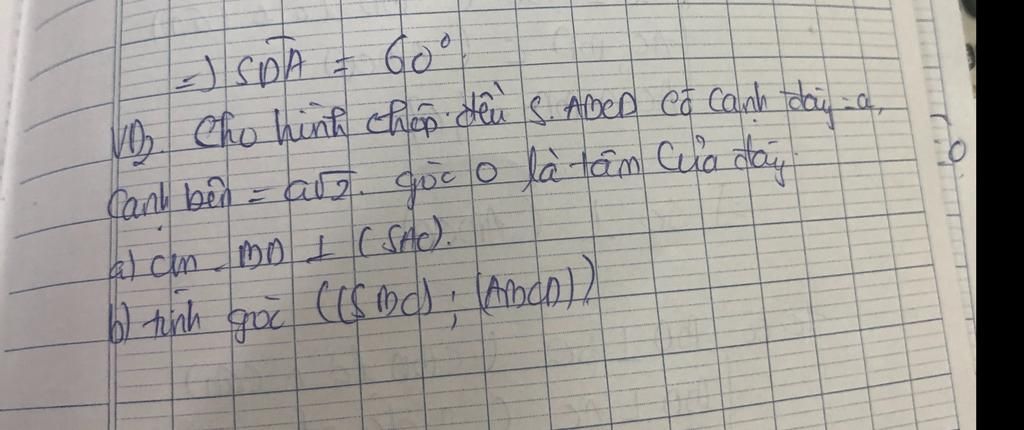 => SDA = 60°
VD2. Cho hình chóp đều S.ABCD có cạnh đáy = a,
Cạnh bên = a√2. gọi O là tâm của đáy.
a) cm BD ⊥ (SAC).
b) tính góc ((SBC); (ABCD))